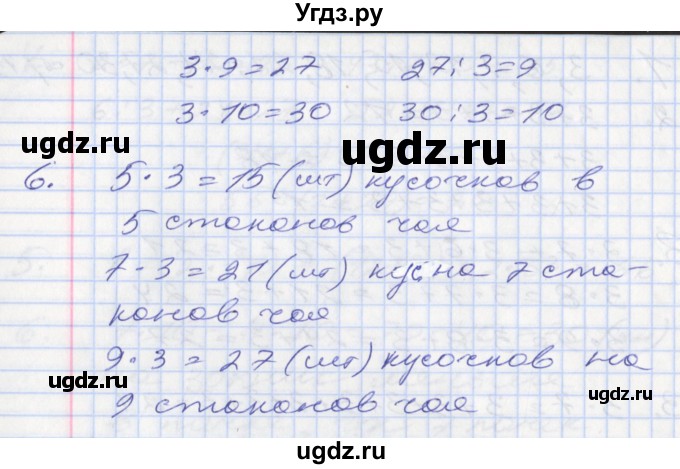 Угдз.ру
3·9=27 27:3=9
3·10=30 30:3=10
ugdz.ru ugdz.ru
6. 5·3=15(шт) кусочков в
5 стаканов чая
7·3=21(шт) кус. на 7 ста-
ugdz.ru
канов чая
9·3=27(шт) кусочков на
ugdz.ru ugdz.ru
9 стаканов чая
ugdz.ru